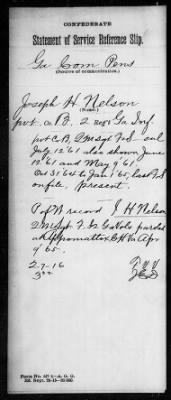 CONFEDERATE
Statement of Service Reference Slip.
Ga Com Pens
(Source of communication.)
Joseph H. Nelson
(Name.)
pvt. co B. 2 Regt Ga Inf
pvt C B, Q M Sgt F & S enl
July 12 '61 also shown June
12 '61 and May 9 '61.
Oct 31 '64 to Jan 1 '65, last roll
on file, present.
P of W record J H Nelson
Q M Sgt 2 Ga Vols paroled
at Appomattox C H Va Apr
9 '65.
2-7-16